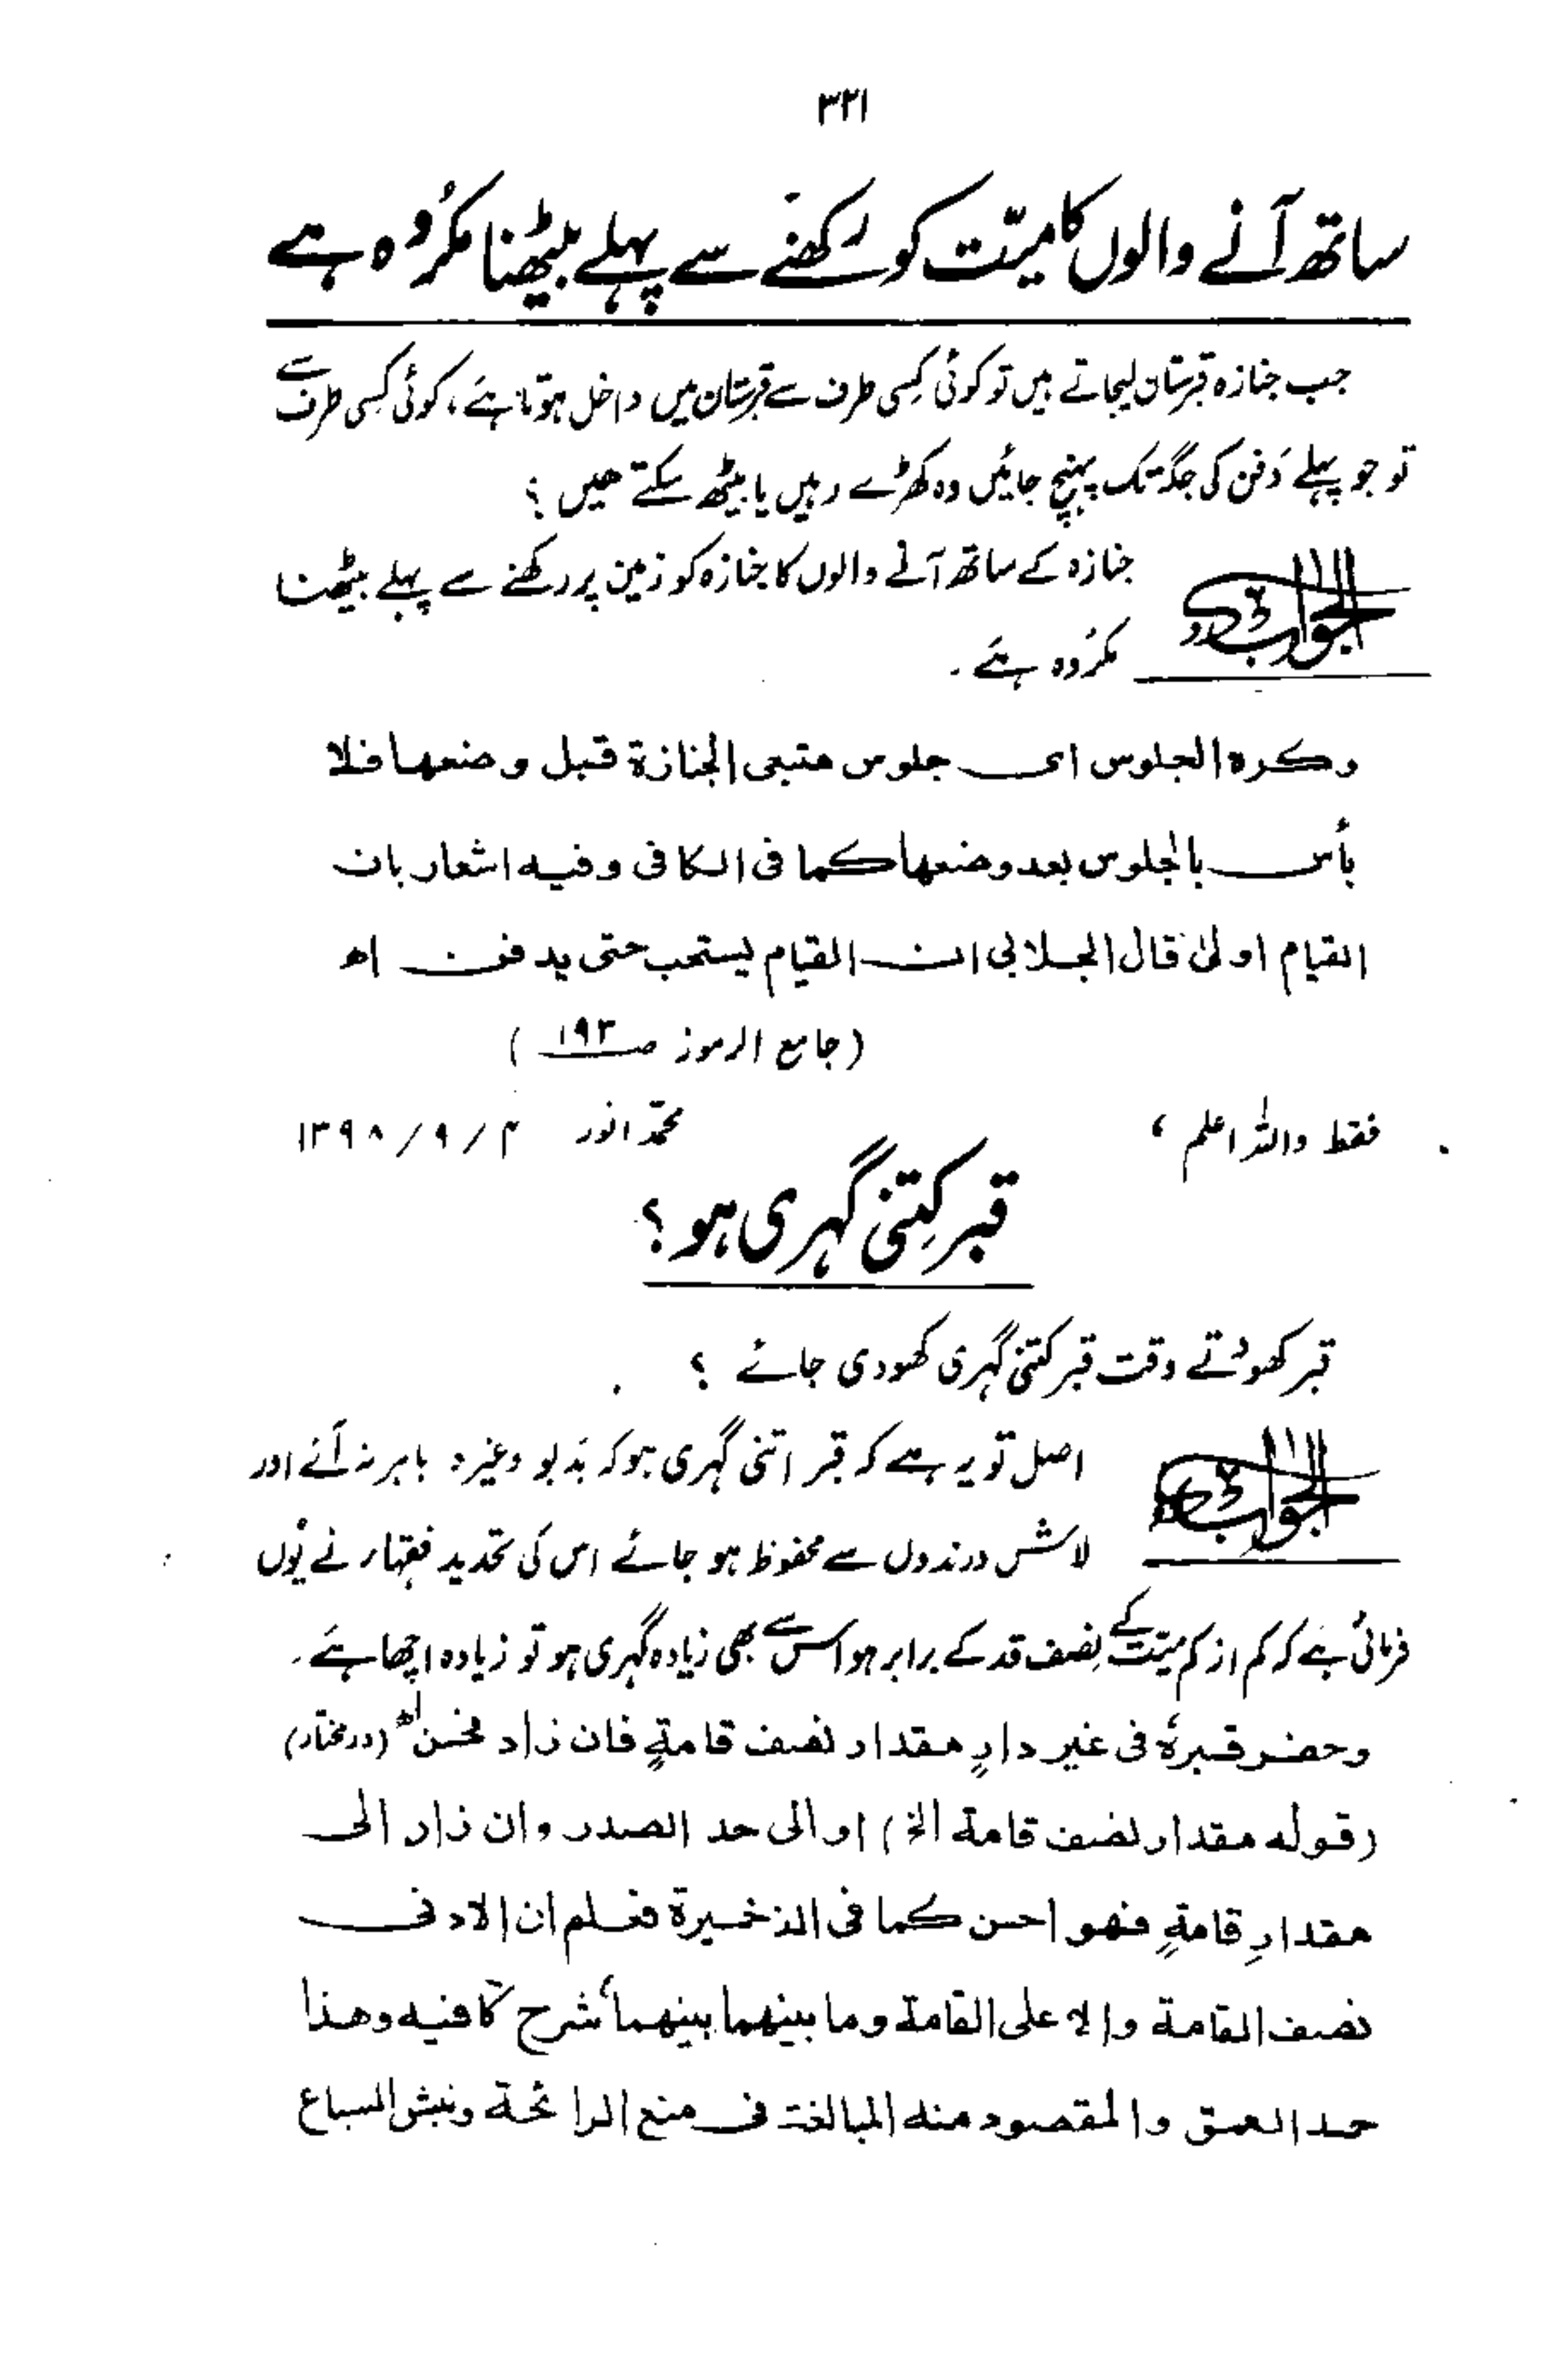 ۳۲۱
ساتھ آنے والوں کا میّت کو رکھنے سے پہلے بیٹھنا مکرُوہ ہے
جب جنازہ قبرستان لیجاتے ہیں تو کوئی کِسی طرف سے قبرستان میں داخل ہوتا ہے، کوئی کِسی طرف سے
تو جو پہلے دَفن کی جگہ تک پہنچ جائیں وہ کھڑے رہیں یا بیٹھ سکتے ھیں ؟
الجواب جنازہ کے ساتھ آنے والوں کا جنازہ کو زمین پر رکھنے سے پہلے بیٹھنا
مکرُوہ ہے ۔
وكره الجلوس اى جلوس متبعى الجنازة قبل وضعها فلا
بأس بالجلوس بعد وضعها كما فى الكافى وفيه اشعار بان
القيام اولىٰ قال الجلابى ان القيام يستحب حتى يدفن اھ
(جامع الرموز صـ ۱۹۳)
فقط واللہ اعلم ،
محمّد انور ۴ / ۹ / ۱۳۹۸
قبر کِتنی گہری ہو ؟
قبر کھودتے وقت قبر کتنی گہری کھودی جائے ؟
الجواب اصل تو یہ ہے کہ قبر اتنی گہری ہو کہ بَدبو وغیرہ باہر نہ آئے اور
لاش درندوں سے محفوظ ہو جائے اس کی تحدید فقہاء نے یُوں
فرمائی ہے کہ کم از کم میّت کے نِصف قد کے برابر ہو اس سے بھی زیادہ گہری ہو تو زیادہ اچھا ہے ۔
وحفر قبرهٗ فى غير دارٍ مقدار نصف قامةٍ فان زاد فحسن اھ (درمختار)
(قوله مقدار نصف قامة الخ) او الى حد الصدر وان زاد الى
مقدارِ قامةٍ فهو احسن كما فى الذخيرة فعلم ان الادنى
نصف القامة والاعلى القامة وما بينهما بينهما، شرح كافيه وهذا
حد العمق والمقصود منه المبالغة فى منع الرائحة ونبش السباع